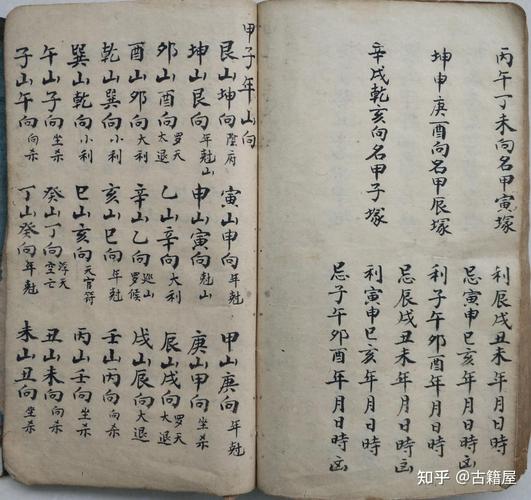 丙午丁未向名甲寅塚
利辰戌丑未年月日時
忌寅申巳亥年月日時凶
坤申庚酉向名甲辰塚
利子午卯酉年月日時
忌辰戌丑未年月日時凶
辛戌乾亥向名甲子塚
利寅申巳亥年月日時
忌子午卯酉年月日時凶
甲子年山向
艮山坤向 陰府 寅山申向 年尅 甲山庚向 年尅
坤山艮向 年尅山 申山寅向 尅山 庚山甲向 坐杀
卯山酉向 罗天太退 乙山辛向 大利 辰山戌向 罗天大退
酉山卯向 大利 辛山乙向 巡山罗候 戌山辰向 大退
乾山巽向 小利 亥山巳向 年尅 壬山丙向 向杀
巽山乾向 小利 巳山亥向 天官符 丙山壬向 坐杀
午山子向 坐杀 癸山丁向 浮天空亡 丑山未向 向杀
子山午向 向杀 丁山癸向 年尅 未山丑向 坐杀
知乎 @古籍屋